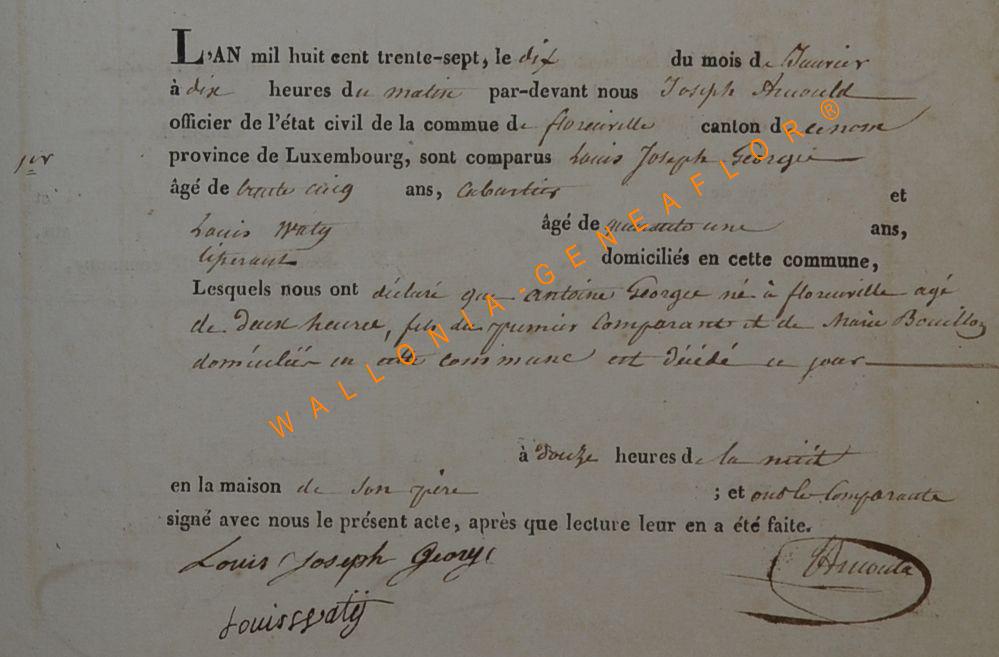 L'AN mil huit cent trente-sept, le dix du mois de Janvier
à dix heures du matin par-devant nous Joseph Arnould
officier de l'état civil de la commue de florenville canton de ce nom
province de Luxembourg, sont comparus Louis Joseph Georges
1er
âgé de trente cinq ans, Cabartier et
Louis Waty âgé de quarante une ans,
tiserant domiciliés en cette commune,
Lesquels nous ont déclaré que antoine Georges né à florenville agé
de deux heures, fils du premier Comparant et de Marie Bouillon
domiciliés en cette commune est décédé ce jour
à Douze heures de la nuit
en la maison de son père ; et ont les Comparants
signé avec nous le présent acte, après que lecture leur en a été faite.
Louis Joseph Georges
Arnould
Louis Watÿ
WALLONIA-GENEAFLOR ®